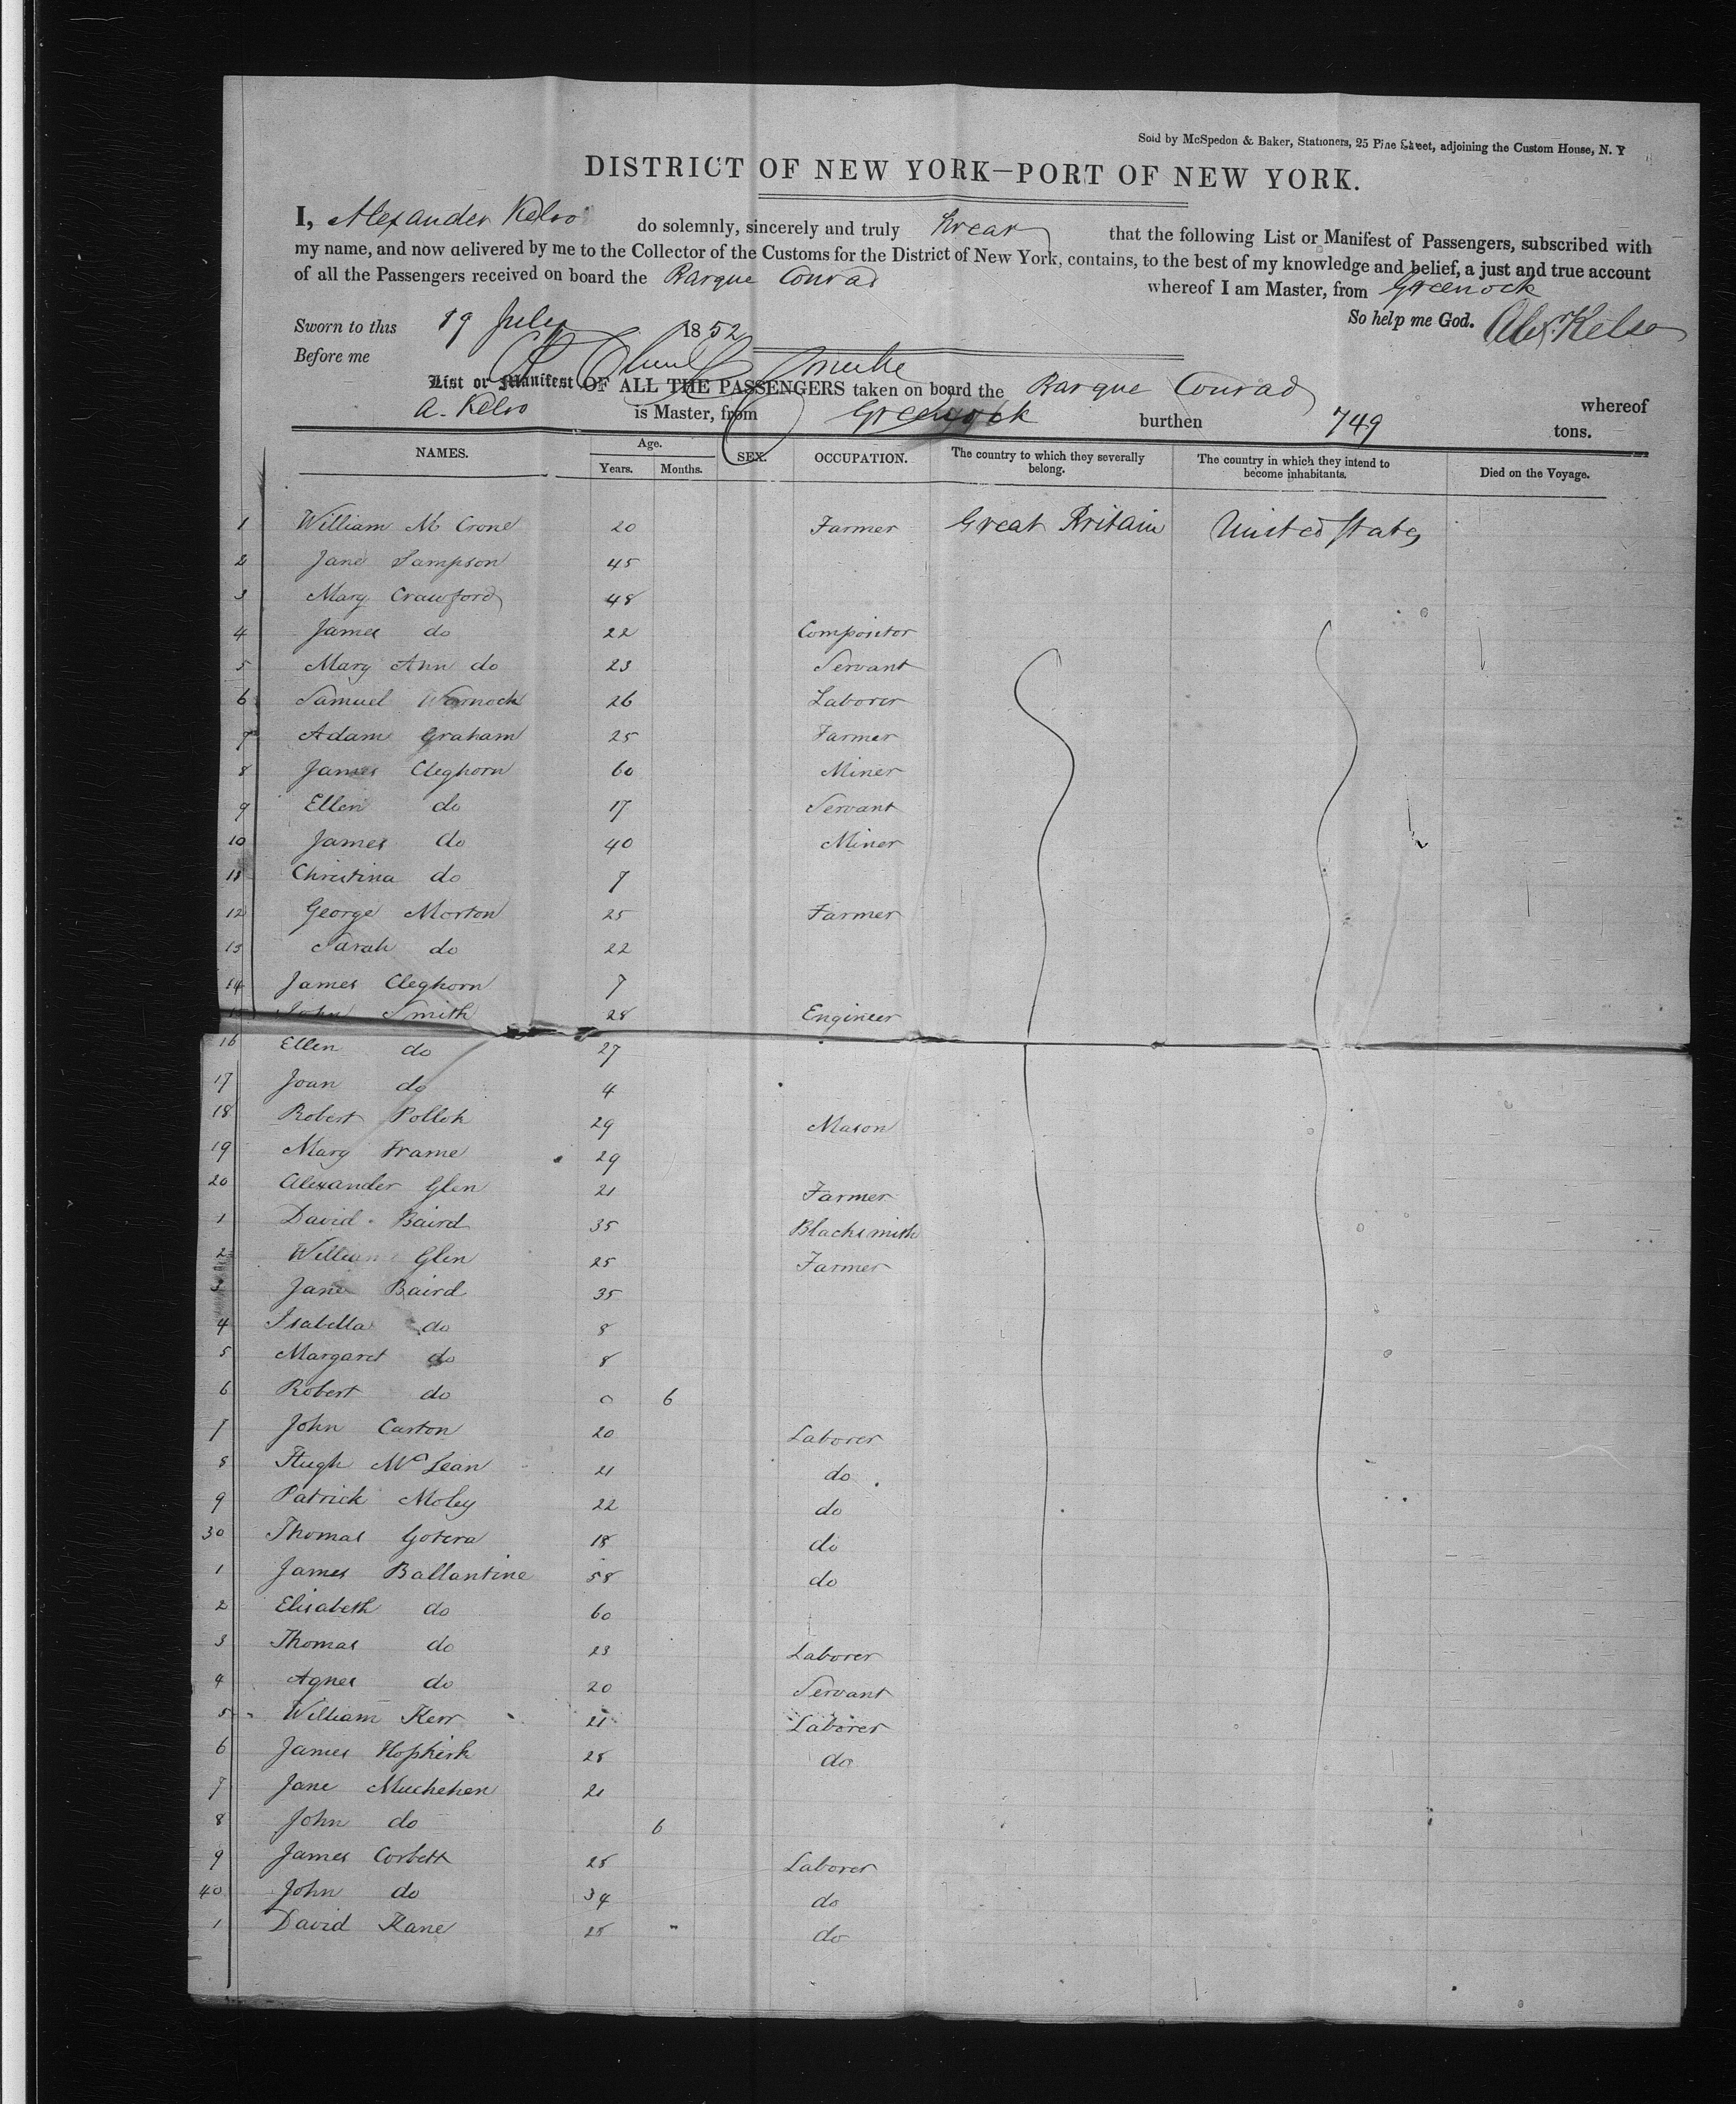 Sold by McSpedon & Baker, Stationers, 25 Pine Street, adjoining the Custom House, N. Y
DISTRICT OF NEW YORK—PORT OF NEW YORK.
I, Alexander Kelso do solemnly, sincerely and truly Swear that the following List or Manifest of Passengers, subscribed with
my name, and now delivered by me to the Collector of the Customs for the District of New York, contains, to the best of my knowledge and belief, a just and true account
of all the Passengers received on board the Barque Conrad whereof I am Master, from Greenock
So help me God. Alex. Kelso
Sworn to this 19 July 1852
Before me
List or Manifest OF ALL THE PASSENGERS taken on board the Barque Conrad whereof
A. Kelso is Master, from Greenock burthen 749 tons.
NAMES. Age. Years. Months. SEX. OCCUPATION. The country to which they severally belong. The country in which they intend to become inhabitants. Died on the Voyage.
1 William Mc Crone 20 Farmer Great Britain United States
2 Jane Sampson 45
3 Mary Crawford 48
4 James do 22 Compositor
5 Mary Ann do 23 Servant
6 Samuel Warnock 26 Laborer
7 Adam Graham 25 Farmer
8 James Cleghorn 60 Miner
9 Ellen do 17 Servant
10 James do 40 Miner
11 Christina do 7
12 George Morton 25 Farmer
13 Sarah do 22
14 James Cleghorn 7
15 John Smith 28 Engineer
16 Ellen do 27
17 Joan do 4
18 Robert Pollok 29 Mason
19 Mary Frame 29
20 Alexander Glen 21 Farmer
1 David Baird 35 Blacksmith
2 William Glen 25 Farmer
3 Jane Baird 35
4 Isabella do 8
5 Margaret do 8
6 Robert do 0 6
7 John Carton 20 Laborer
8 Hugh McLean 21 do
9 Patrick Moley 22 do
30 Thomas Gotera 18 do
1 James Ballantine 58 do
2 Elisabeth do 60
3 Thomas do 23 Laborer
4 Agnes do 20 Servant
5 William Kerr 21 Laborer
6 James Hopkirk 28 do
7 Jane Muckehen 21
8 John do 6
9 James Corbett 28 Laborer
40 John do 34 do
1 David Kane 28 " do